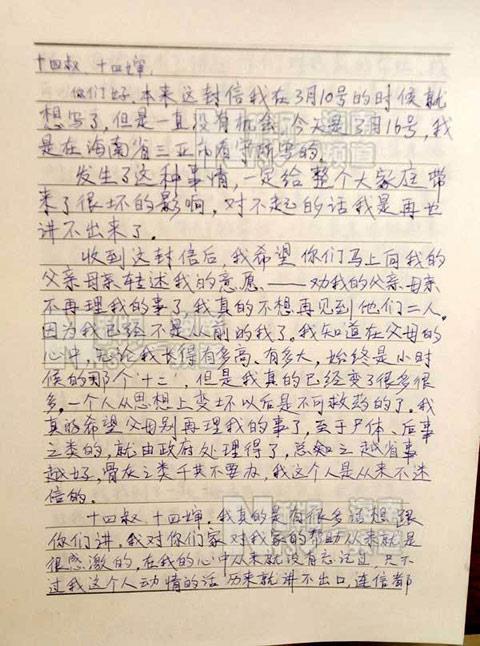 十四叔 十四婶.
你们好.本来这封信我在3月10号的时候就
想写了,但是一直没有机会.今天是3月16号,我
是在海南省三亚市看守所写的.
发生了这种事情,一定给整个大家庭带
来了很坏的影响,对不起的话我是再也
讲不出来了.
收到这封信后,我希望你们马上向我的
父亲母亲转述我的意愿——劝我的父亲母亲
不再理我的事了,我真的不想再见到他们二人.
因为我已经不是从前的我了.我知道在父母的
心中,无论我长得有多高,有多大,始终是小时
候的那个“十二”,但是我真的已经变了很多很
多,一个人从思想上变坏以后是不可救药的了.我
真的希望父母别再理我的事了,至于尸体、后事
之类的,就由政府处理得了,总知之越省事
越好,骨灰之类千其不要办,我这个人是从来不迷
信的.
十四叔 十四婶.我真的是有很多话想跟
你们讲.我对你们家对我家的帮助从来就是
很感激的,在我的心中从来就没有忘记过,只不
过我这个人动情的话历来就讲不出口,连信都